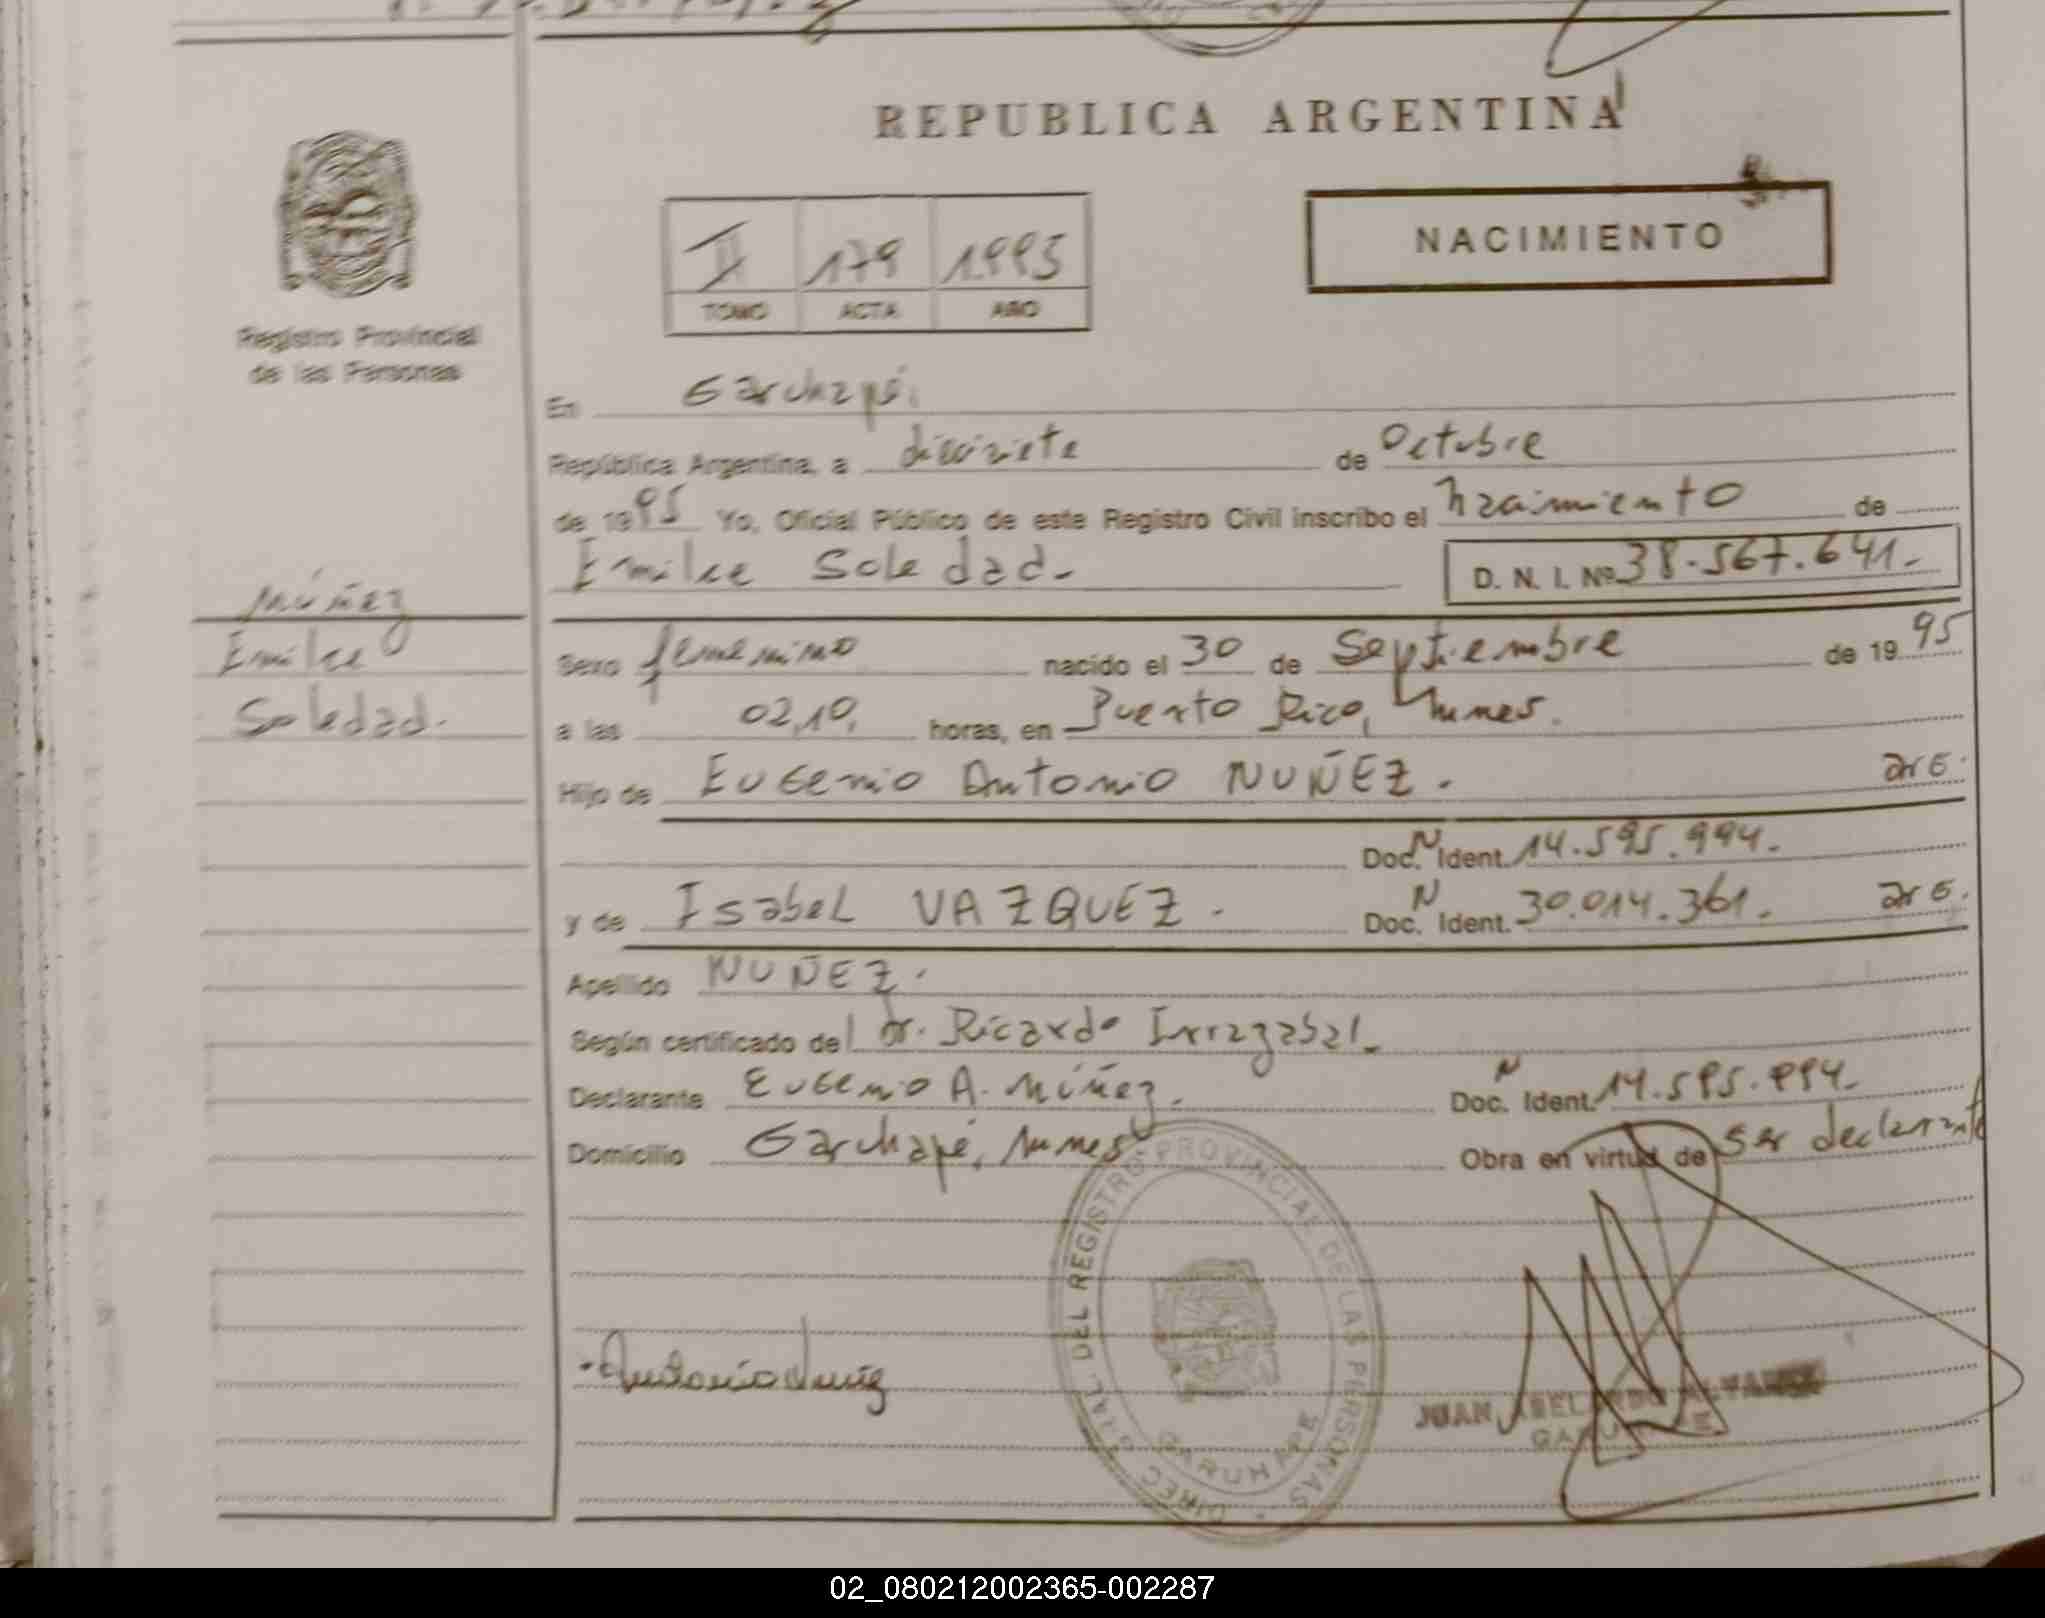 REPUBLICA ARGENTINA
NACIMIENTO
II 179 1995
TOMO ACTA AÑO
Registro Provincial
de las Personas
En Garuhapé.
República Argentina, a diecisiete de Octubre
de 1995 Yo, Oficial Público de este Registro Civil inscribo el nacimiento de
Emilce Soledad.- D. N. I. Nº 38.567.641.-
Núñez
Emilce
Soledad.
Sexo femenino nacido el 30 de Septiembre de 1995
a las 02,10, horas, en Puerto Rico, Mnes.
Hijo de Eugenio Antonio NUÑEZ. arg.
Doc. N Ident. 14.595.994.
y de Isabel VAZQUEZ. Doc. N Ident. 30.014.361. arg.
Apellido NUÑEZ.
Según certificado del Dr. Ricardo Irrazabal.
Declarante Eugenio A. Núñez. Doc. N Ident. 14.595.994.
Domicilio Garuhapé, Mnes Obra en virtud de ser declarante
DIREC. GRAL. DEL REGISTRO PROVINCIAL DE LAS PERSONAS
GARUHAPE
Antonio Nuñez
JUAN ABELARDO ALVAREZ
02_080212002365-002287